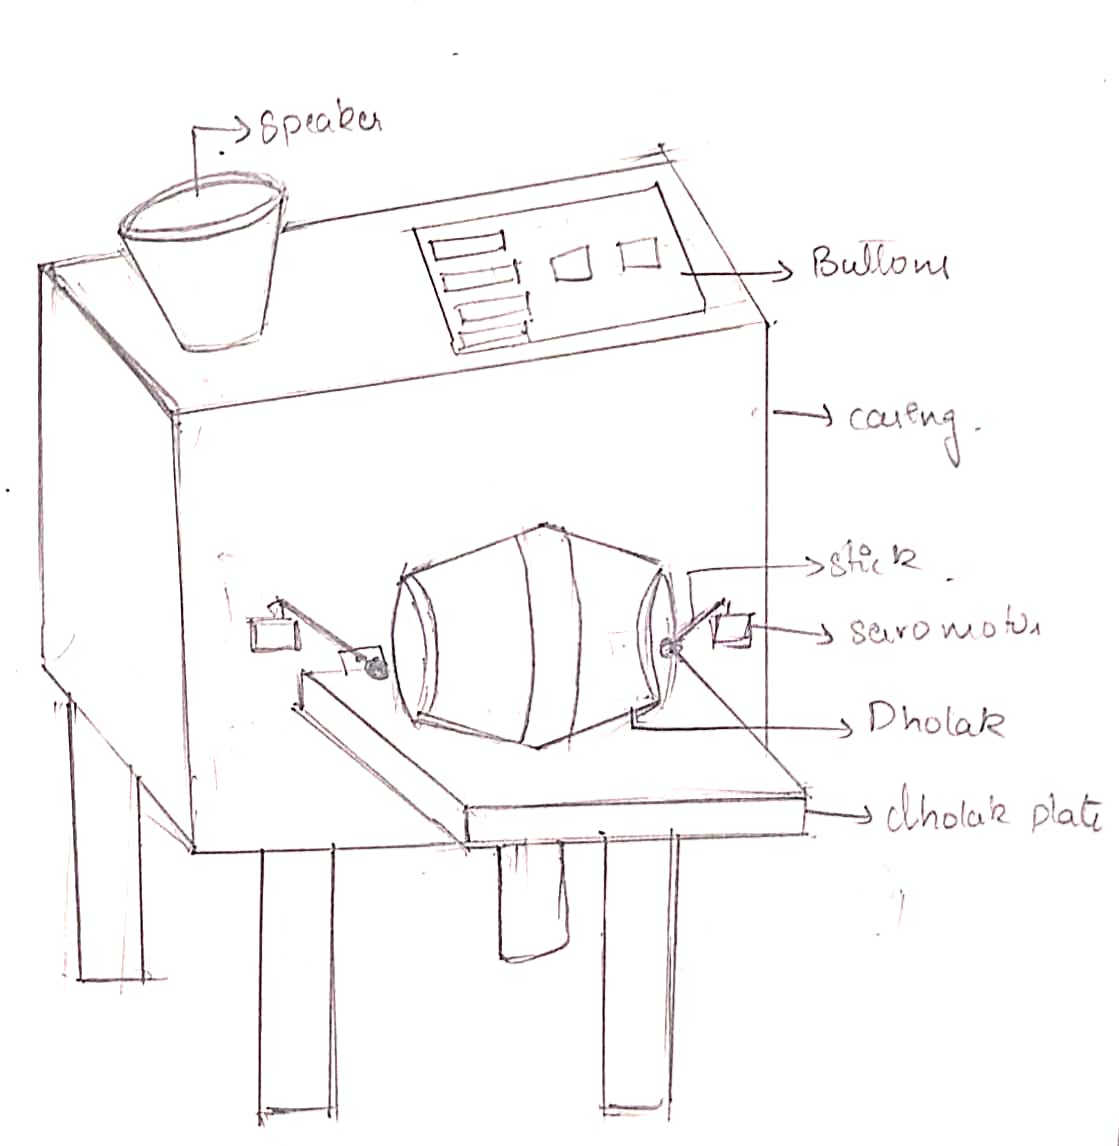 Speaker
Buttons
casing.
stick
servomotor
Dholak
dholak plate